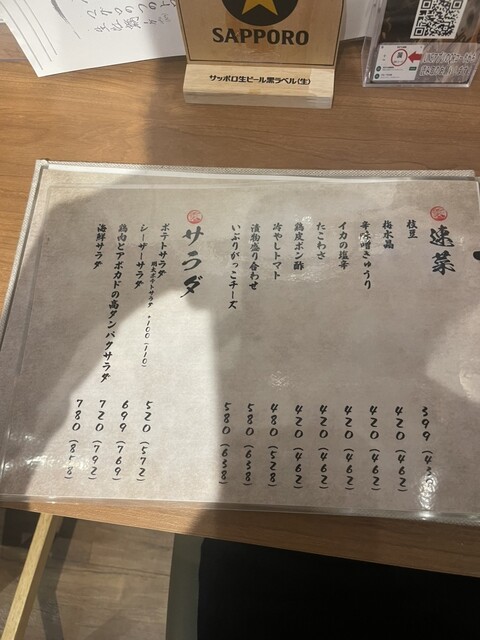 SAPPORO
サッポロ生ビール黒ラベル(生)
速菜
枝豆 399
梅水晶 420 (462)
辛味噌きゅうり 420 (462)
イカの塩辛 420 (462)
たこわさ 420 (462)
鶏皮ポン酢 420 (462)
冷やしトマト 480 (528)
漬物盛り合わせ 580 (638)
いぶりがっこチーズ 580 (638)
サラダ
ポテトサラダ 520 (572)
明太ポテトサラダ +100 (110)
シーザーサラダ 699 (769)
鶏肉とアボカドの高タンパクサラダ 720 (792)
海鮮サラダ 780 (858)